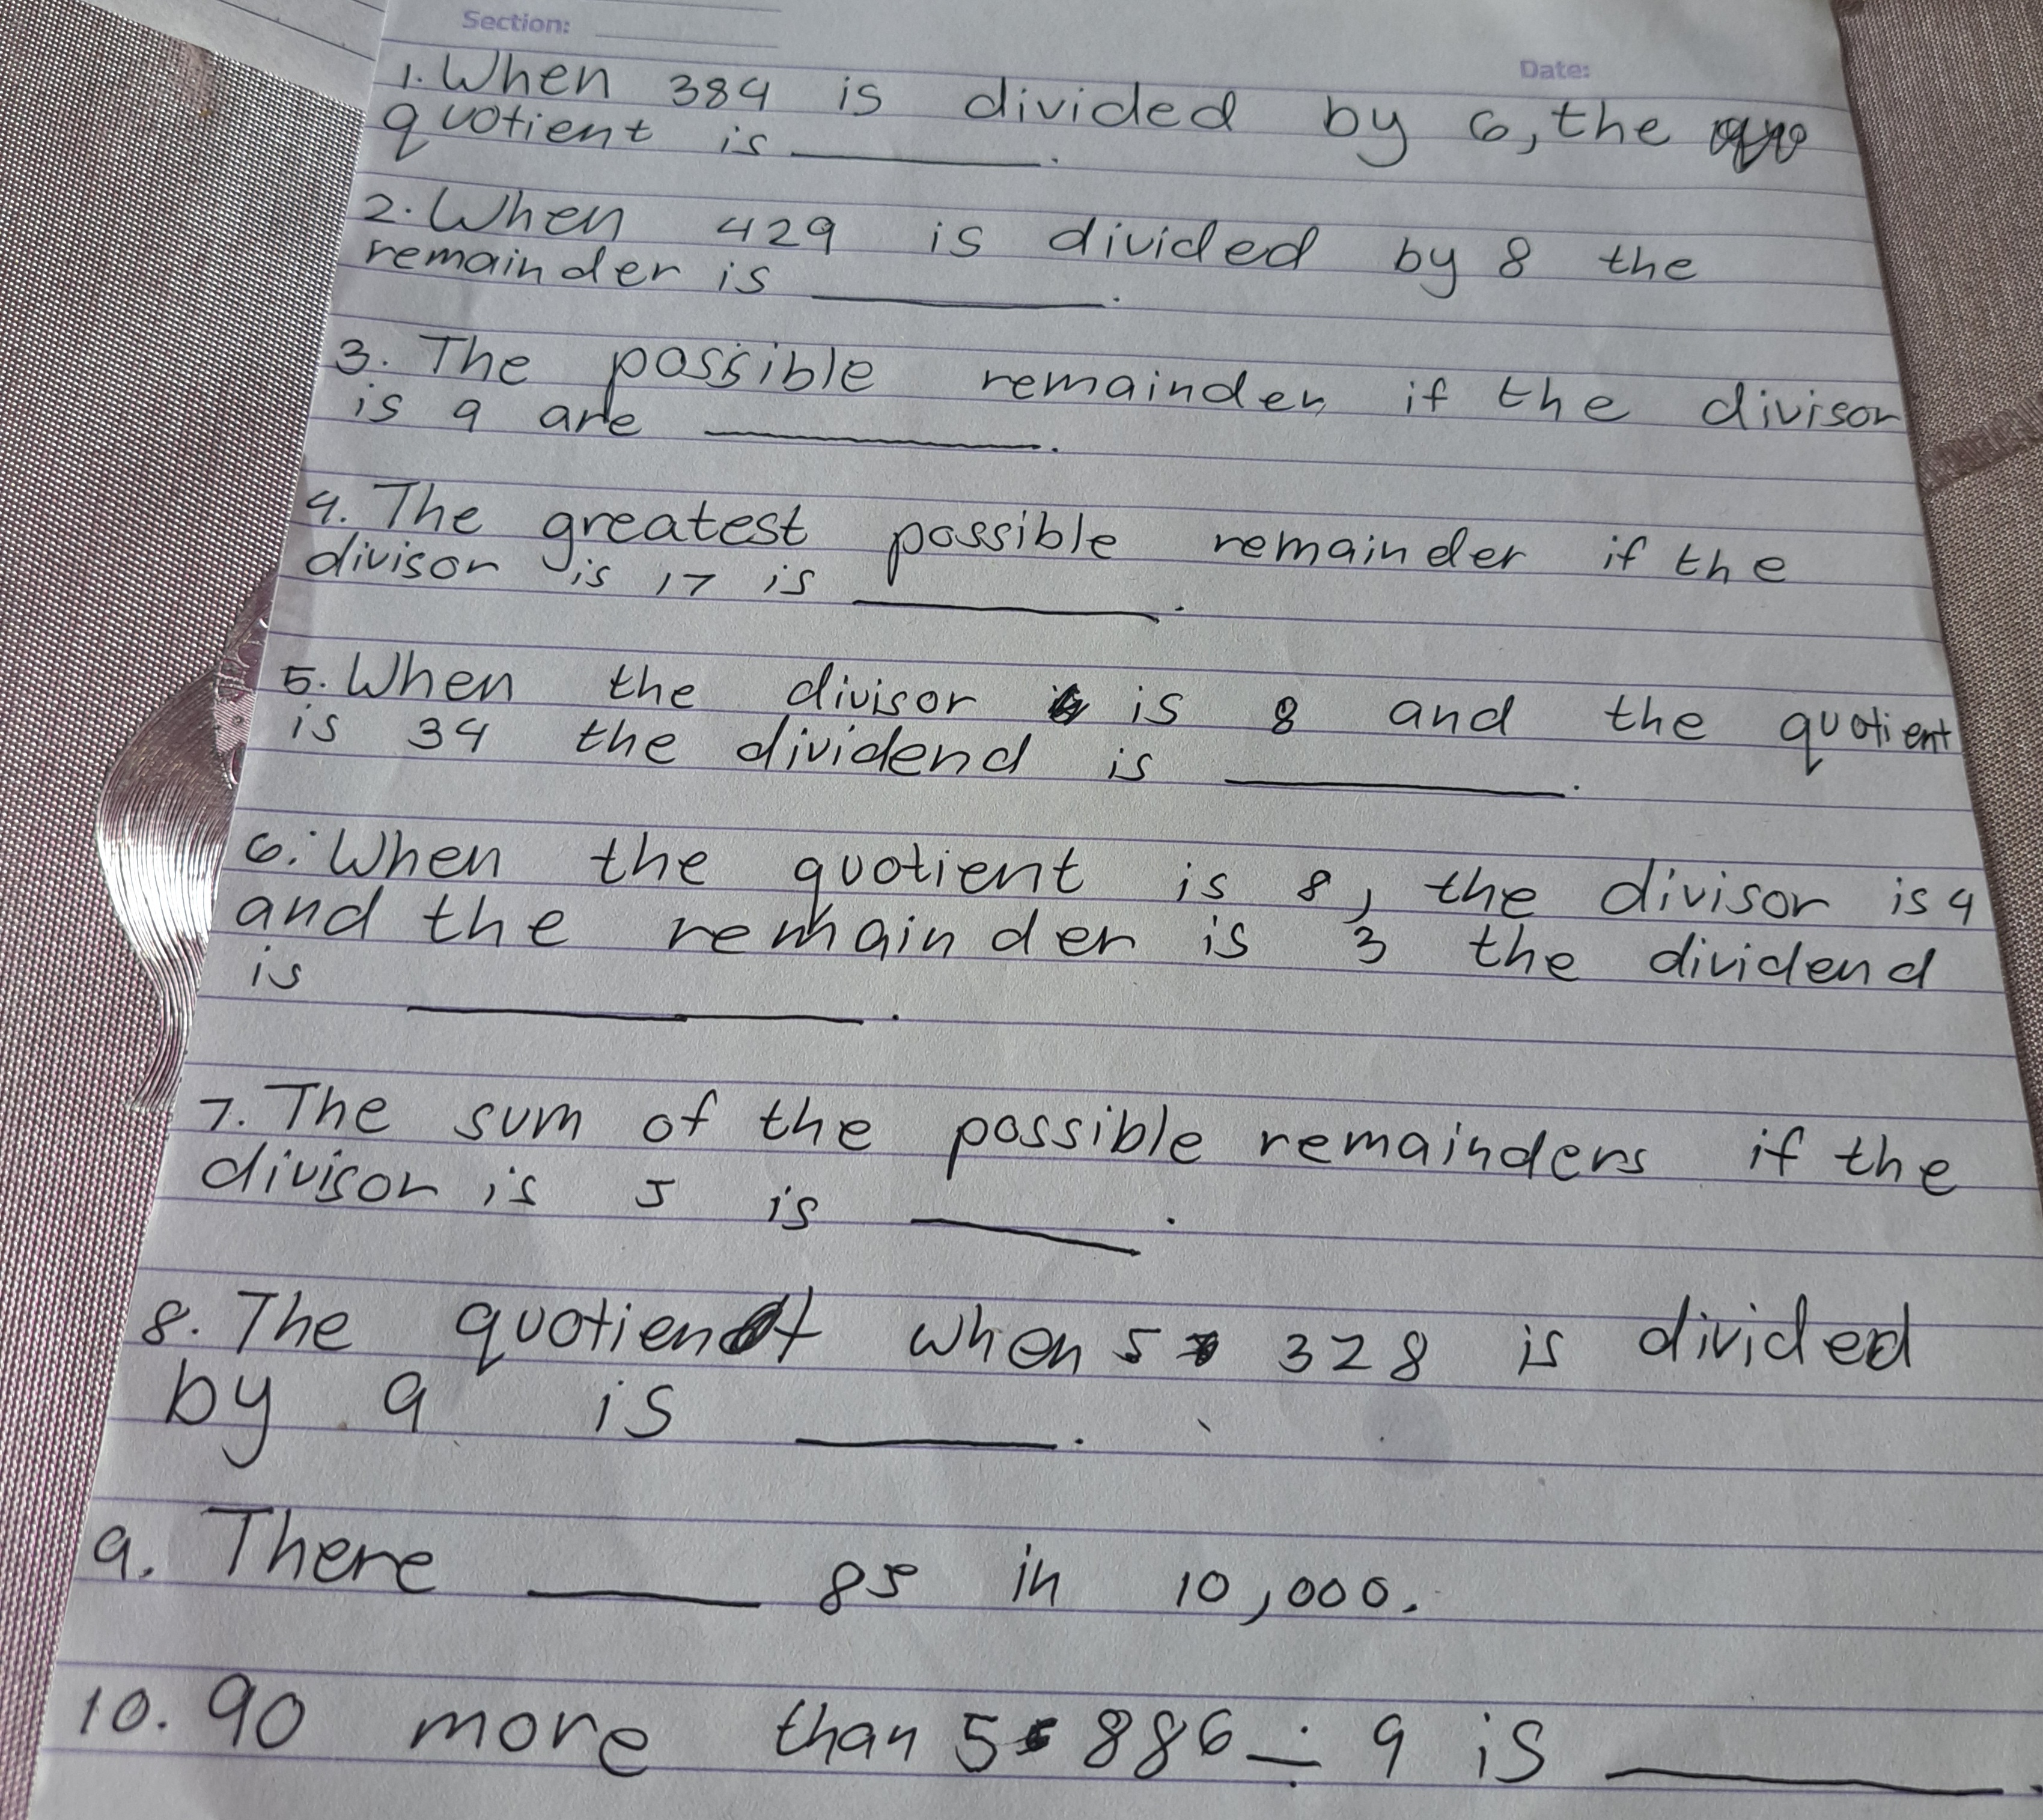 Section:
Date:
1. When 384 is divided by 6, the
quotient is ________.
2. When 429 is divided by 8 the
remainder is ________.
3. The possible remainder if the divisor
is 9 are ________.
4. The greatest possible remainder if the
divisor is 17 is ________.
5. When the divisor is 8 and the quotient
is 34 the dividend is ________.
6. When the quotient is 8, the divisor is 4
and the remainder is 3 the dividend
is ________.
7. The sum of the possible remainders if the
divisor is 5 is ________.
8. The quotient when 5 328 is divided
by 9 is ________.
9. There ________ 8s in 10,000.
10. 90 more than 5 886 ÷ 9 is ________.